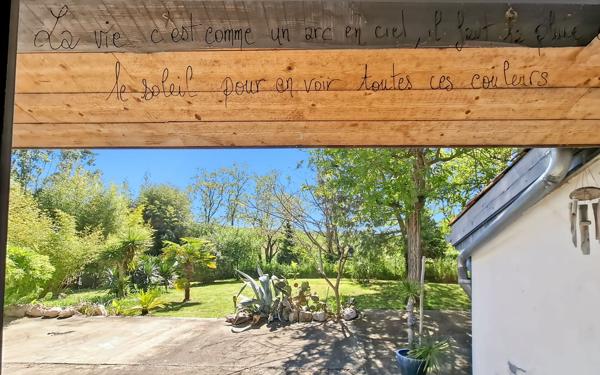 La vie c'est comme un arc en ciel, il faut la pluie
le soleil pour en voir toutes ces couleurs